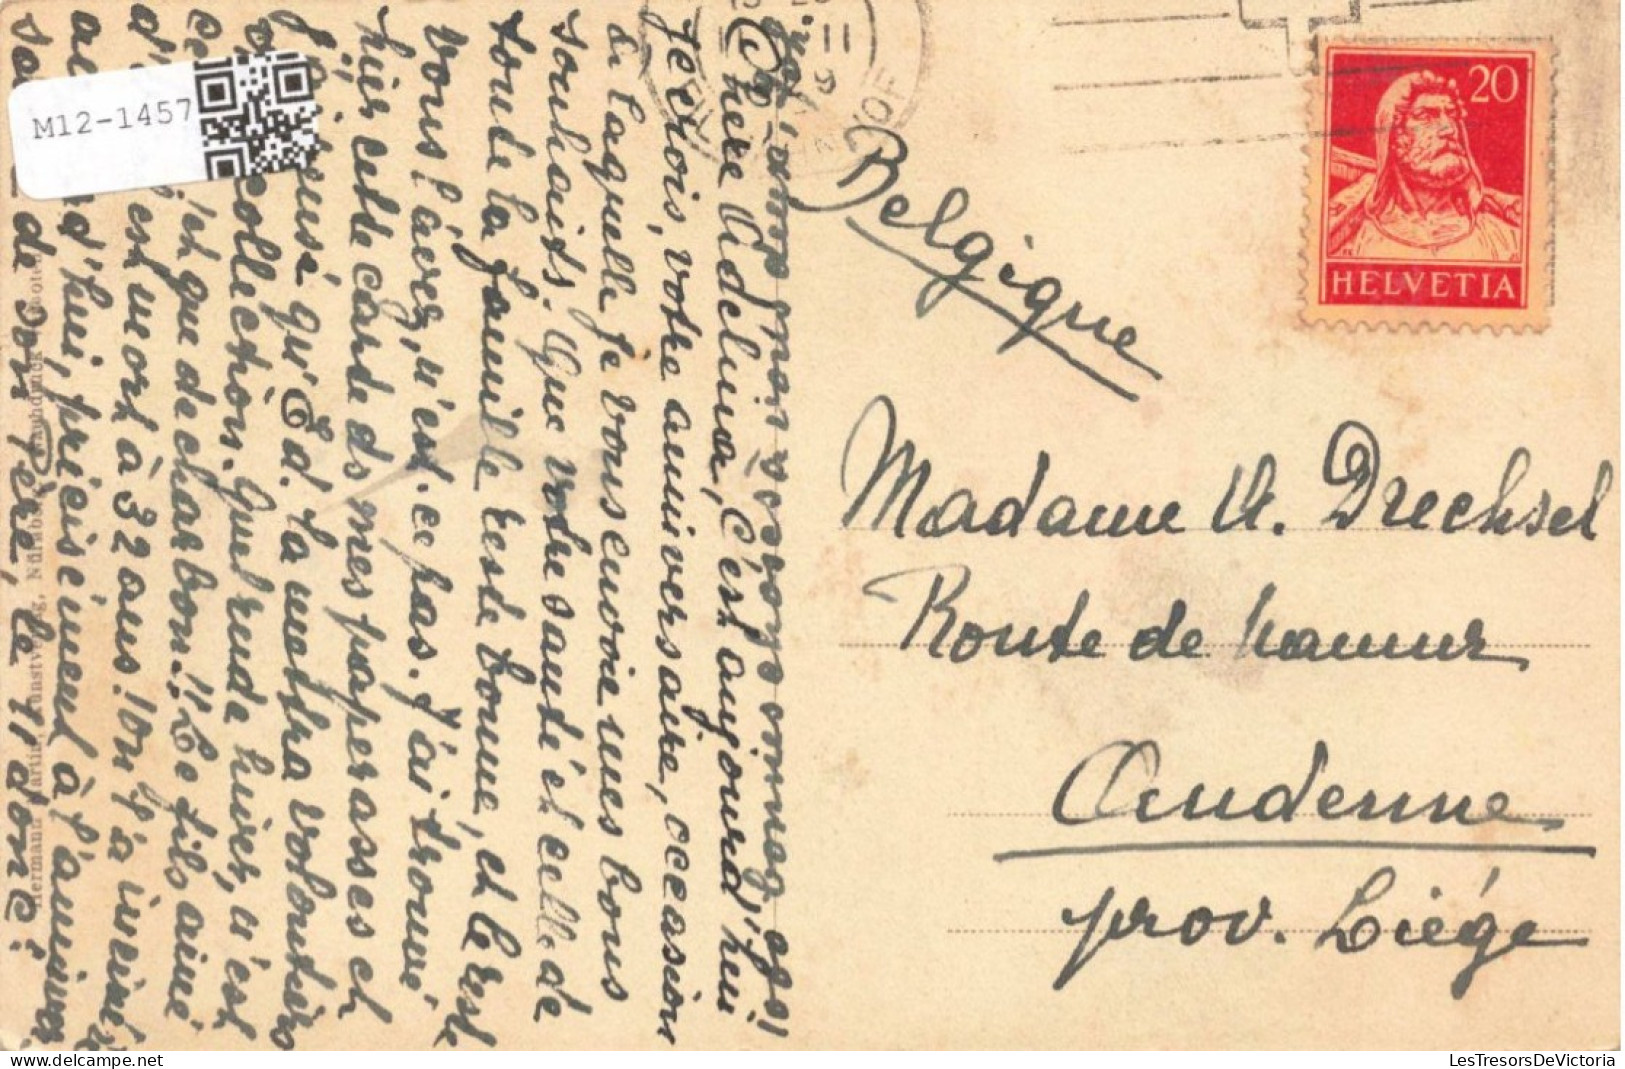 M12-1457
20
HELVETIA
Belgique
Madame A. Drechsel
Route de Namur
Andenne
prov. Liége
Chère Adelina, C'est aujourd'hui
je crois, votre anniversaire, occasion
à laquelle je vous envoie mes bons
souhaits. Que votre santé et celle de
toute la famille reste bonne, et le reste
vous l'avez, n'est-ce pas. J'ai trouvé
hier cette carde ds mes paperasses et
qu'Ed. la mettra volontiers
collection. Quel rude hiver, n'est
et que de charbon!! Le fils aîné
est mort à 32 ans! On l'a incinéré
précisément à l'anniver
de son Père, le 11 donc!
Hermann Martin, Kunstverlag, Nürnberg
LesTresorsDeVictoria